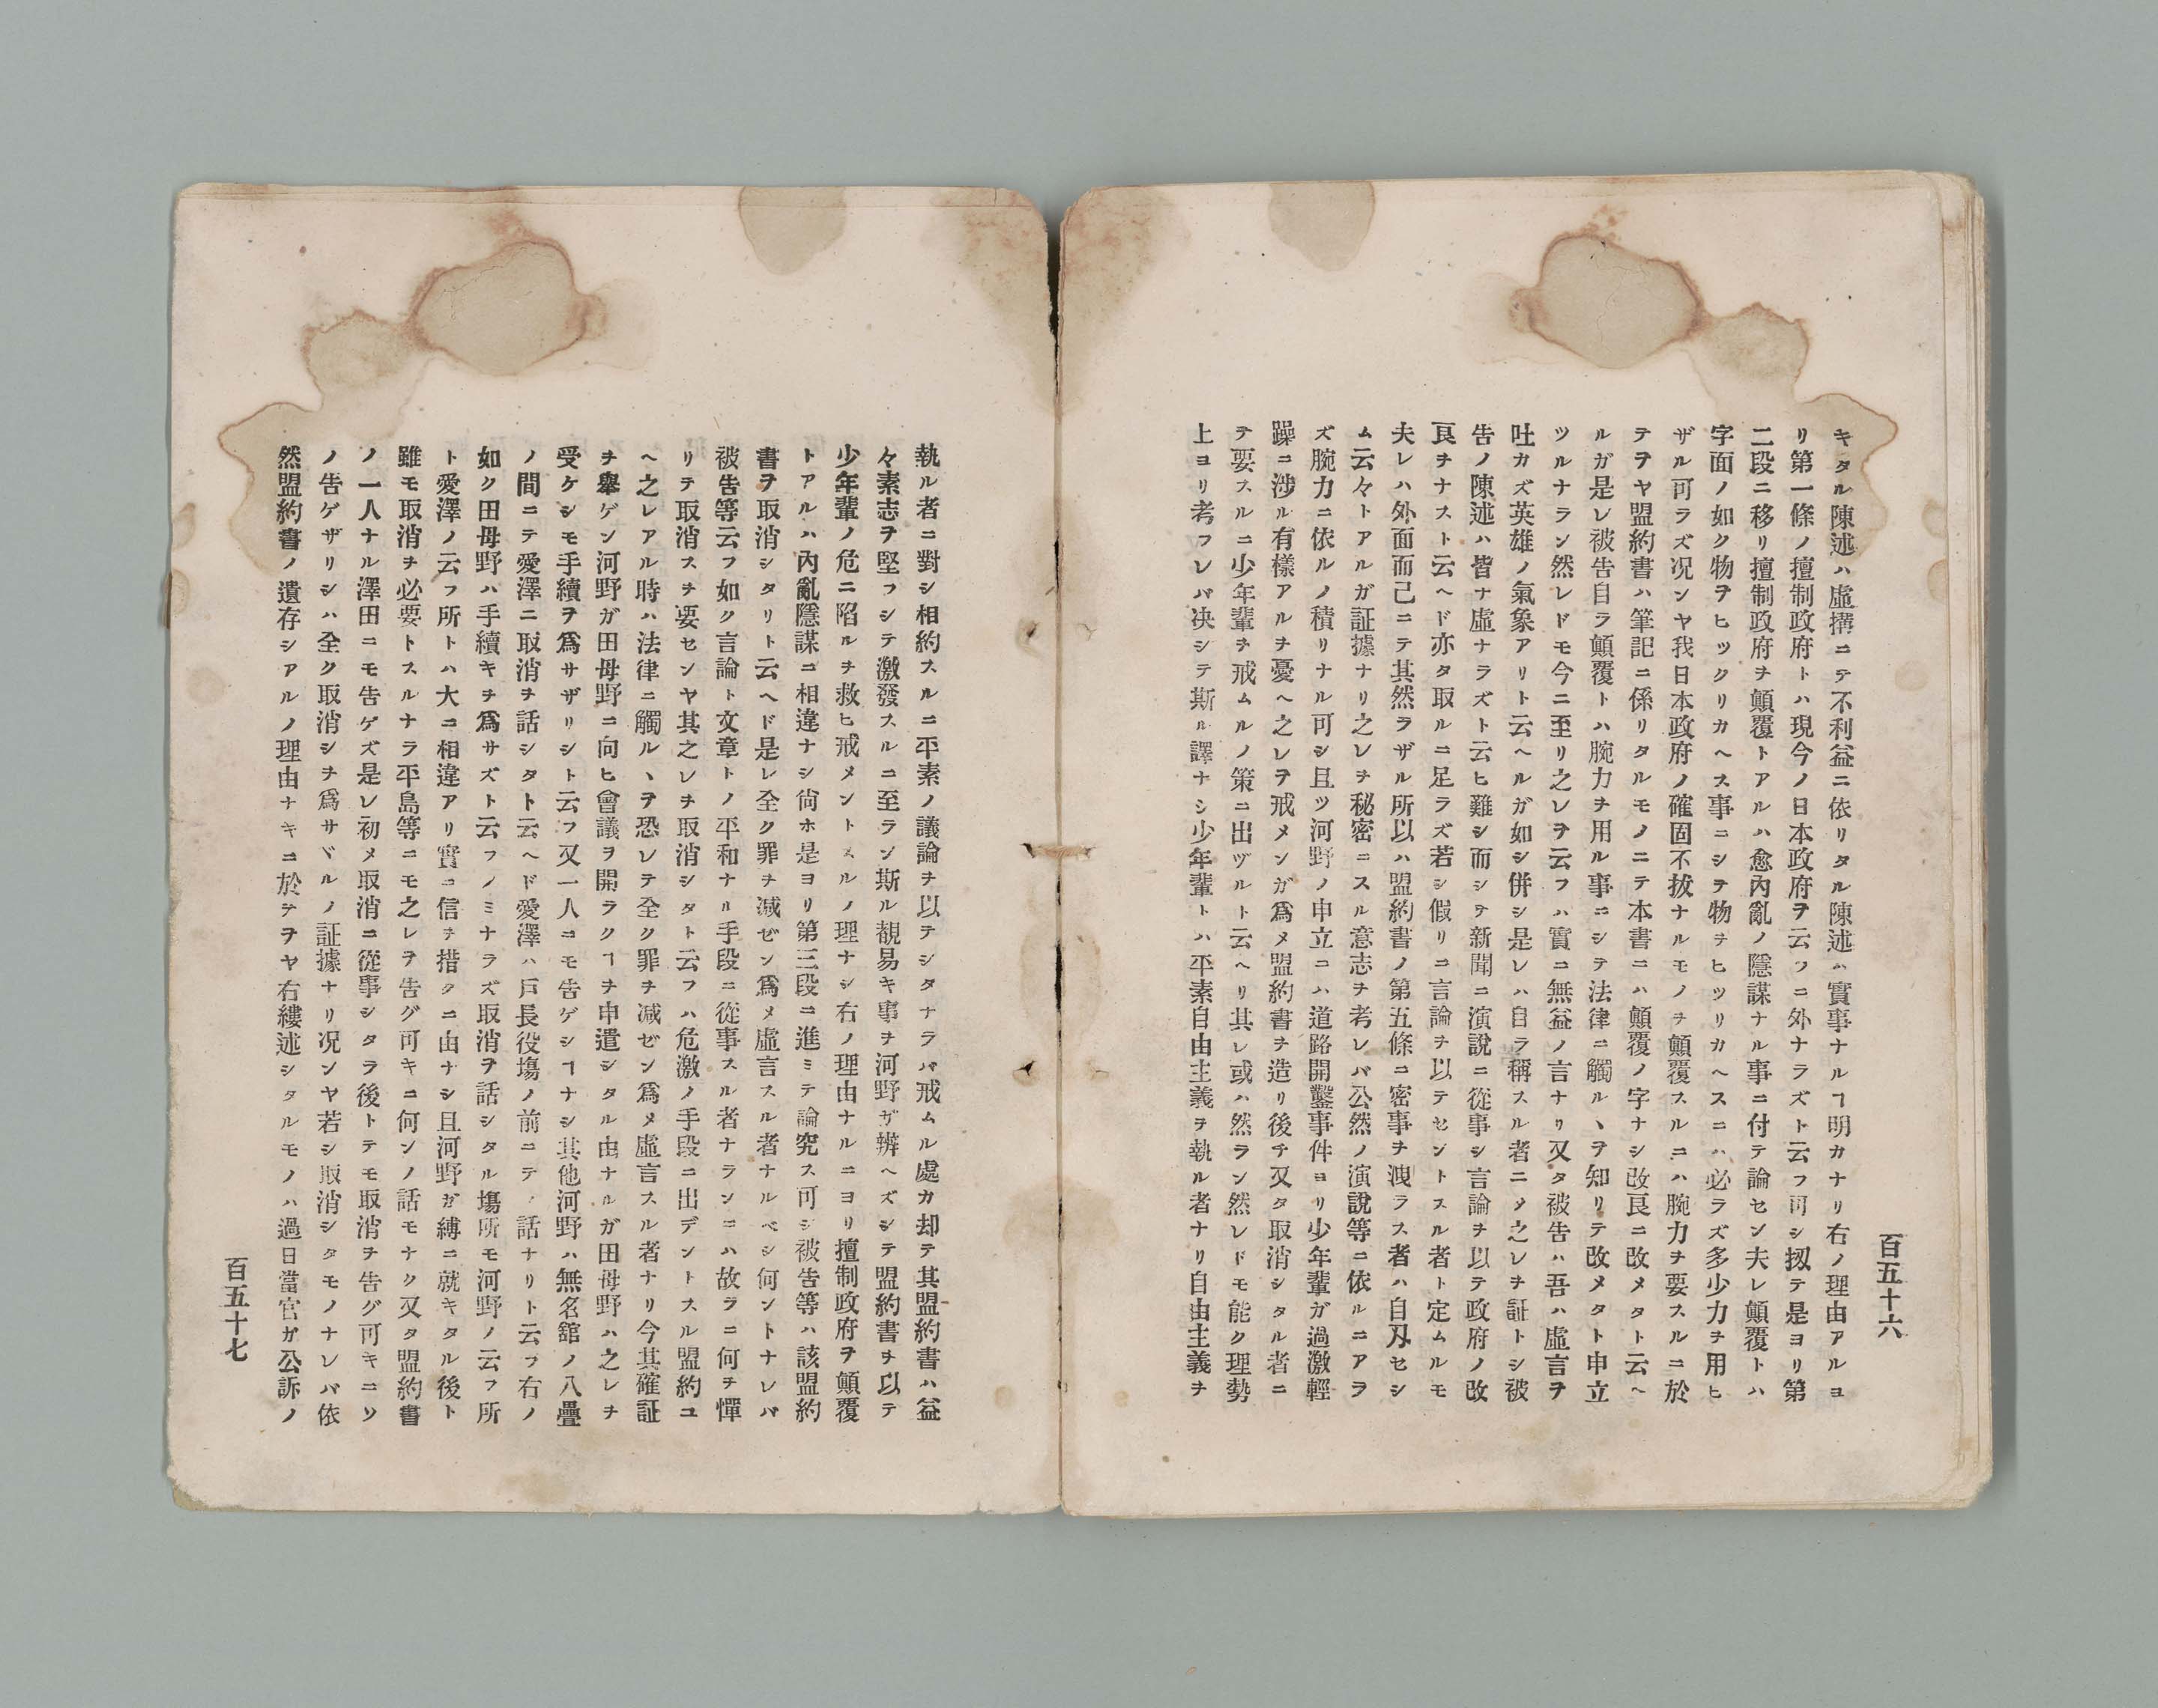 百五十六
キタル陳述ハ虛搆ニテ不利益ニ依リタル陳述ハ實事ナルヿ明カナリ右ノ理由アルヨ
リ第一條ノ擅制政府トハ現今ノ日本政府ヲ云フニ外ナラズト云フ可シ扨テ是ヨリ第
二段ニ移リ擅制政府ヲ顚覆トアルハ愈內亂ノ隱謀ナル事ニ付テ論セン夫レ顚覆トハ
字面ノ如ク物ヲヒックリカヘス事ニシテ物ヲヒツリカヘスニハ必ラズ多少力ヲ用ヒ
ザル可ラズ况ンヤ我日本政府ノ確固不拔ナルモノヲ顚覆スルニハ腕力ヲ要スルニ於
テヲヤ盟約書ハ筆記ニ係リタルモノニテ本書ニハ顚覆ノ字ナシ改良ニ改メタト云ヘ
ルガ是レ被告自ラ顚覆トハ腕力ヲ用ル事ニシテ法律ニ觸ルヽヲ知リテ改メタト申立
ツルナラン然レドモ今ニ至リ之レヲ云フハ實ニ無益ノ言ナリ又タ被告ハ吾ハ虛言ヲ
吐カズ英雄ノ氣象アリト云ヘルガ如シ併シ是レハ自ラ稱スル者ニメ之レヲ証トシ被
告ノ陳述ハ皆ナ虛ナラズト云ヒ難シ而シテ新聞ニ演說ニ從事シ言論ヲ以テ政府ノ改
良ヲナスト云ヘド亦タ取ルニ足ラズ若シ假リニ言論ヲ以テセントスル者ト定ムルモ
夫レハ外面而己ニテ其然ラザル所以ハ盟約書ノ第五條ニ密事ヲ洩ラス者ハ自刄セシ
ム云々トアルガ証據ナリ之レヲ秘密ニスル意志ヲ考レバ公然ノ演說等ニ依ルニアラ
ズ腕力ニ依ルノ積リナル可シ且ツ河野ノ申立ニハ道路開鑿事件ヨリ少年輩ガ過激輕
躁ニ涉ル有樣アルヲ憂ヘ之レヲ戒メンガ爲メ盟約書ヲ造リ後チ又タ取消シタル者ニ
テ要スルニ少年輩ヲ戒ムルノ策ニ出ヅルト云ヘリ其レ或ハ然ラン然レドモ能ク理勢
上ヨリ考フレバ决シテ斯ル譯ナシ少年輩トハ平素自由主義ヲ執ル者ナリ自由主義ヲ
執ル者ニ對シ相約スルニ平素ノ議論ヲ以テシタナラバ戒ムル處カ却テ其盟約書ハ益
々素志ヲ堅フシテ激發スルニ至ラン斯ル覩易キ事ヲ河野ガ辨ヘズシテ盟約書ヲ以テ
少年輩ノ危ニ陷ルヲ救ヒ戒メントスルノ理ナシ右ノ理由ナルニヨリ擅制政府ヲ顚覆
トアルハ內亂隱謀ニ相違ナシ尙ホ是ヨリ第三段ニ進ミテ論究ス可シ被告等ハ該盟約
書ヲ取消シタリト云ヘド是レ全ク罪ヲ减ゼン爲メ虛言スル者ナルベシ何ントナレバ
被告等云フ如ク言論ト文章トノ平和ナル手段ニ從事スル者ナランニハ故ラニ何ヲ憚
リテ取消スヲ要センヤ其之レヲ取消シタト云フハ危激ノ手段ニ出デントスル盟約ユ
ヘ之レアル時ハ法律ニ觸ルヽヲ恐レテ全ク罪ヲ减ゼン爲メ虛言スル者ナリ今其確証
ヲ舉ゲン河野ガ田母野ニ向ヒ會議ヲ開ラクヿヲ申遣シタル由ナルガ田母野ハ之レヲ
受ケシモ手續ヲ爲サザリシト云フ又一人ニモ告ゲシヿナシ其他河野ハ無名舘ノ八疊
ノ間ニテ愛澤ニ取消ヲ話シタト云ヘド愛澤ハ戶長役塲ノ前ニテノ話ナリト云フ右ノ
如ク田母野ハ手續キヲ爲サズト云フノミナラズ取消ヲ話シタル塲所モ河野ノ云フ所
ト愛澤ノ云フ所トハ大ニ相違アリ實ニ信ヲ措クニ由ナシ且河野ガ縛ニ就キタル後ト
雖モ取消ヲ必要トスルナラ平島等ニモ之レヲ告グ可キニ何ンノ話モナク又タ盟約書
ノ一人ナル澤田ニモ告ゲズ是レ初メ取消ニ從事シタラ後トテモ取消ヲ告グ可キニソ
ノ告ゲザリシハ全ク取消シヲ爲サヾルノ証據ナリ况ンヤ若シ取消シタモノナレバ依
然盟約書ノ遺存シアルノ理由ナキニ於テヲヤ右縷述シタルモノハ過日當官ガ公訴ノ
百五十七